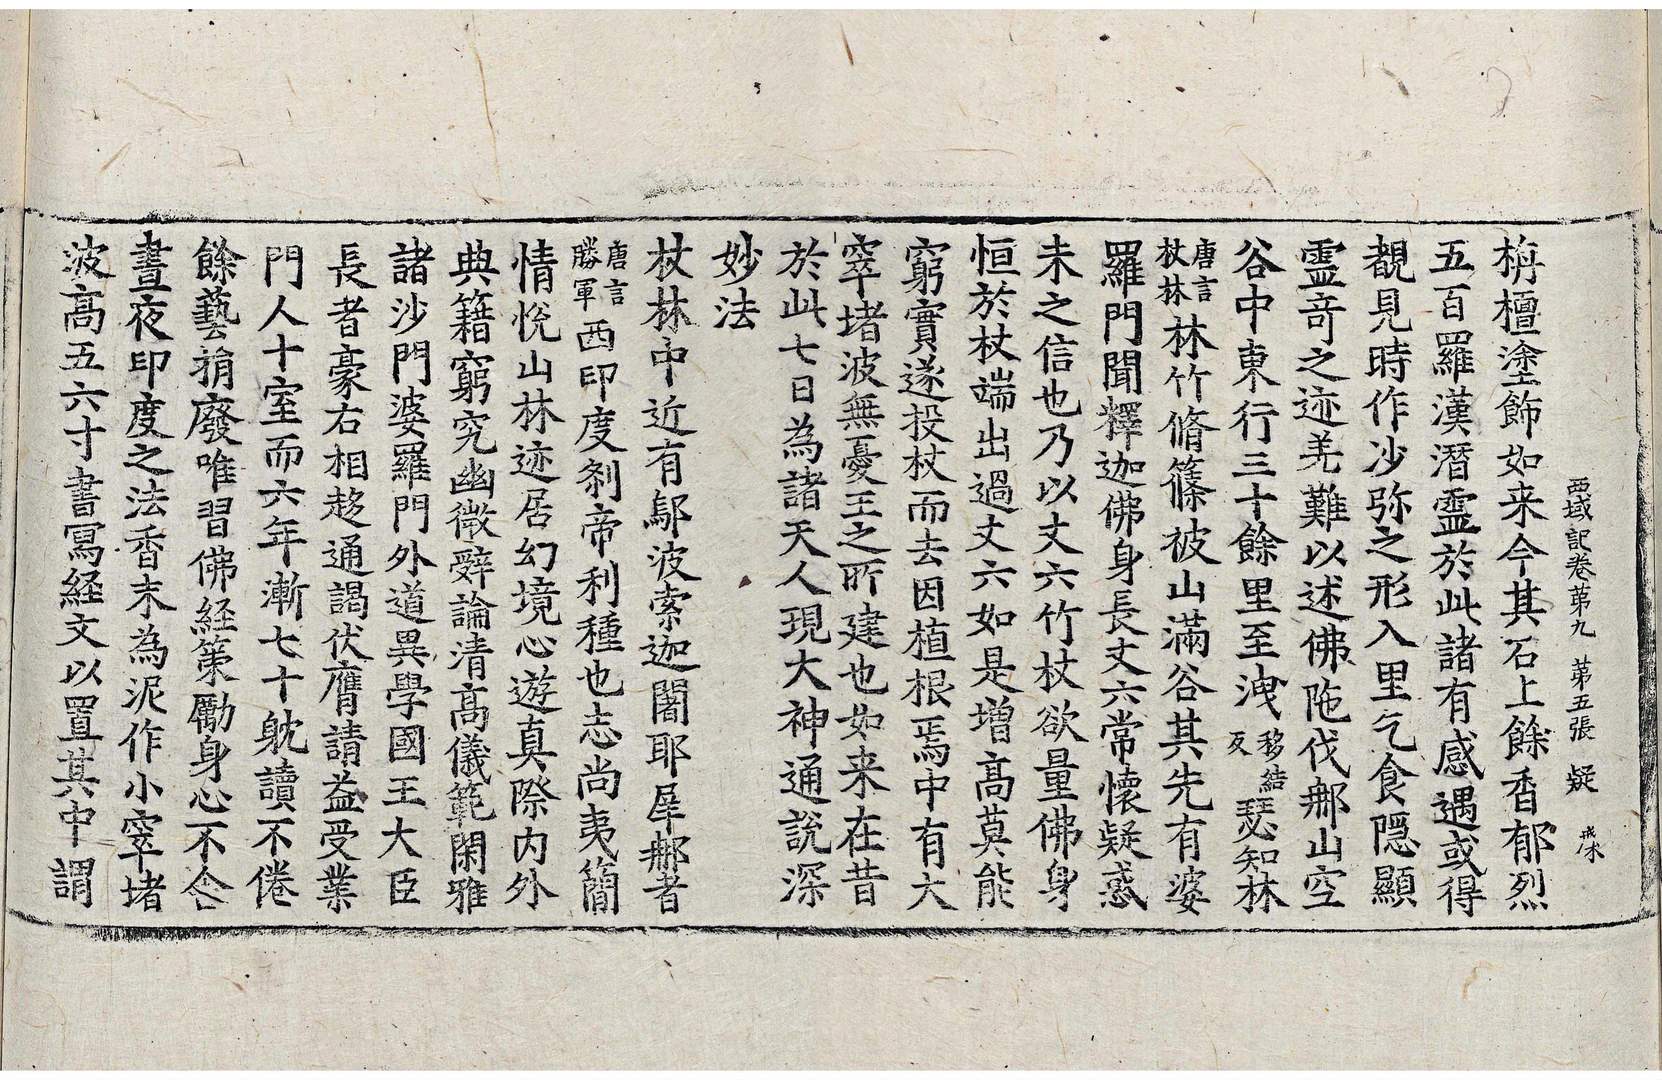 西域記卷第九　第五張　疑　戒水
栴檀塗飾如来今其石上餘香郁烈
五百羅漢潛靈於此諸有感遇或得
覩見時作沙弥之形入里乞食隱顯
靈竒之迹羌難以述佛陁伐郍山空
谷中東行三十餘里至洩移結反瑟知林
唐言杖林林竹脩篠被山滿谷其先有婆
羅門聞釋迦佛身長丈六常懷疑惑
未之信也乃以丈六竹杖欲量佛身
恒於杖端出過丈六如是增高莫能
窮實遂投杖而去因植根焉中有大
窣堵波無憂王之所建也如来在昔
於此七日為諸天人現大神通說深
妙法
杖林中近有鄔波索迦闍耶犀郍者
唐言勝軍西印度剎帝利種也志尚夷簡
情悅山林迹居幻境心遊真際内外
典籍窮究幽微辭論清高儀範閑雅
諸沙門婆羅門外道異學國王大臣
長者豪右相趍通謁伏膺請益受業
門人十室而六年漸七十躭讀不倦
餘藝捐廢唯習佛経策勵身心不舍
晝夜印度之法香末為泥作小窣堵
波高五六寸書寫経文以置其中謂